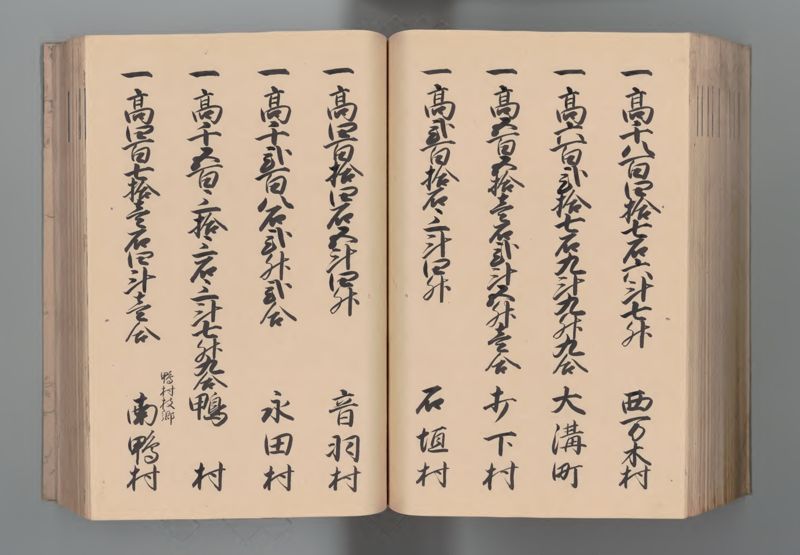 一高千八百四拾七石六斗七升 西万木村
一高六百弐拾七石九斗九升九合 大溝町
一高五百五拾壱石弐斗五升壱合 打下村
一高弐百拾石三斗四升 石垣村
一高四百拾四石五斗四升 音羽村
一高千弐百八石弐升弐合 永田村
一高千五百三拾三石三斗七升九合 鴨村
鴨村枝郷
一高四百七拾壱石四斗壱合 南鴨村